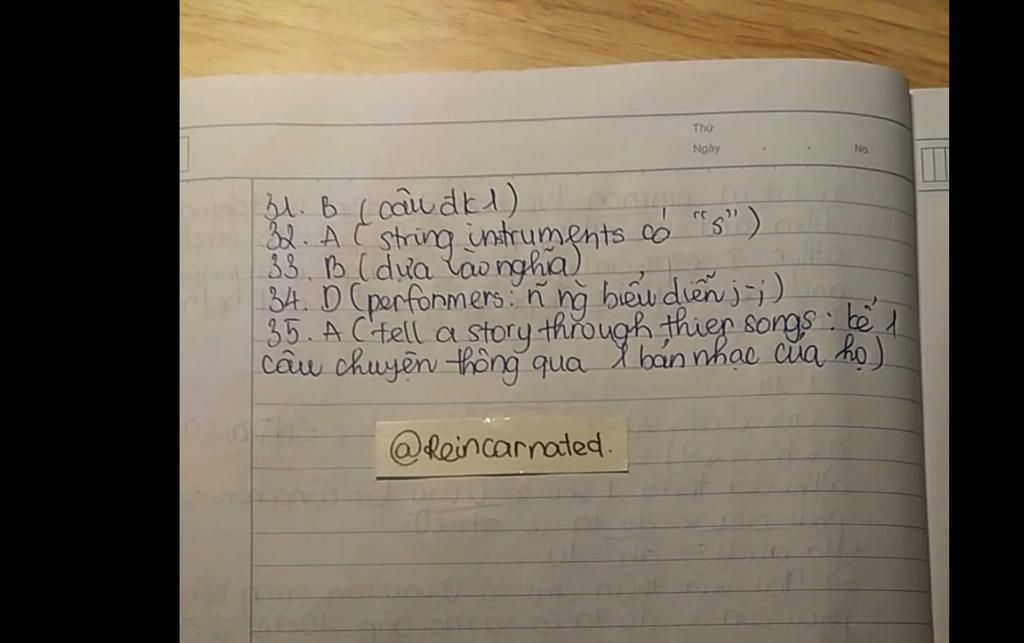 Thứ
Ngày . . No.
31. B ( câu đk 1 )
32. A ( string instruments có "s" )
33. B ( dựa vào nghĩa )
34. D ( performers: ñ ng̀ biểu diễn j-j )
35. A ( tell a story through thier songs : kể 1
câu chuyện thông qua 1 bản nhạc của họ )
@Reincarnated.